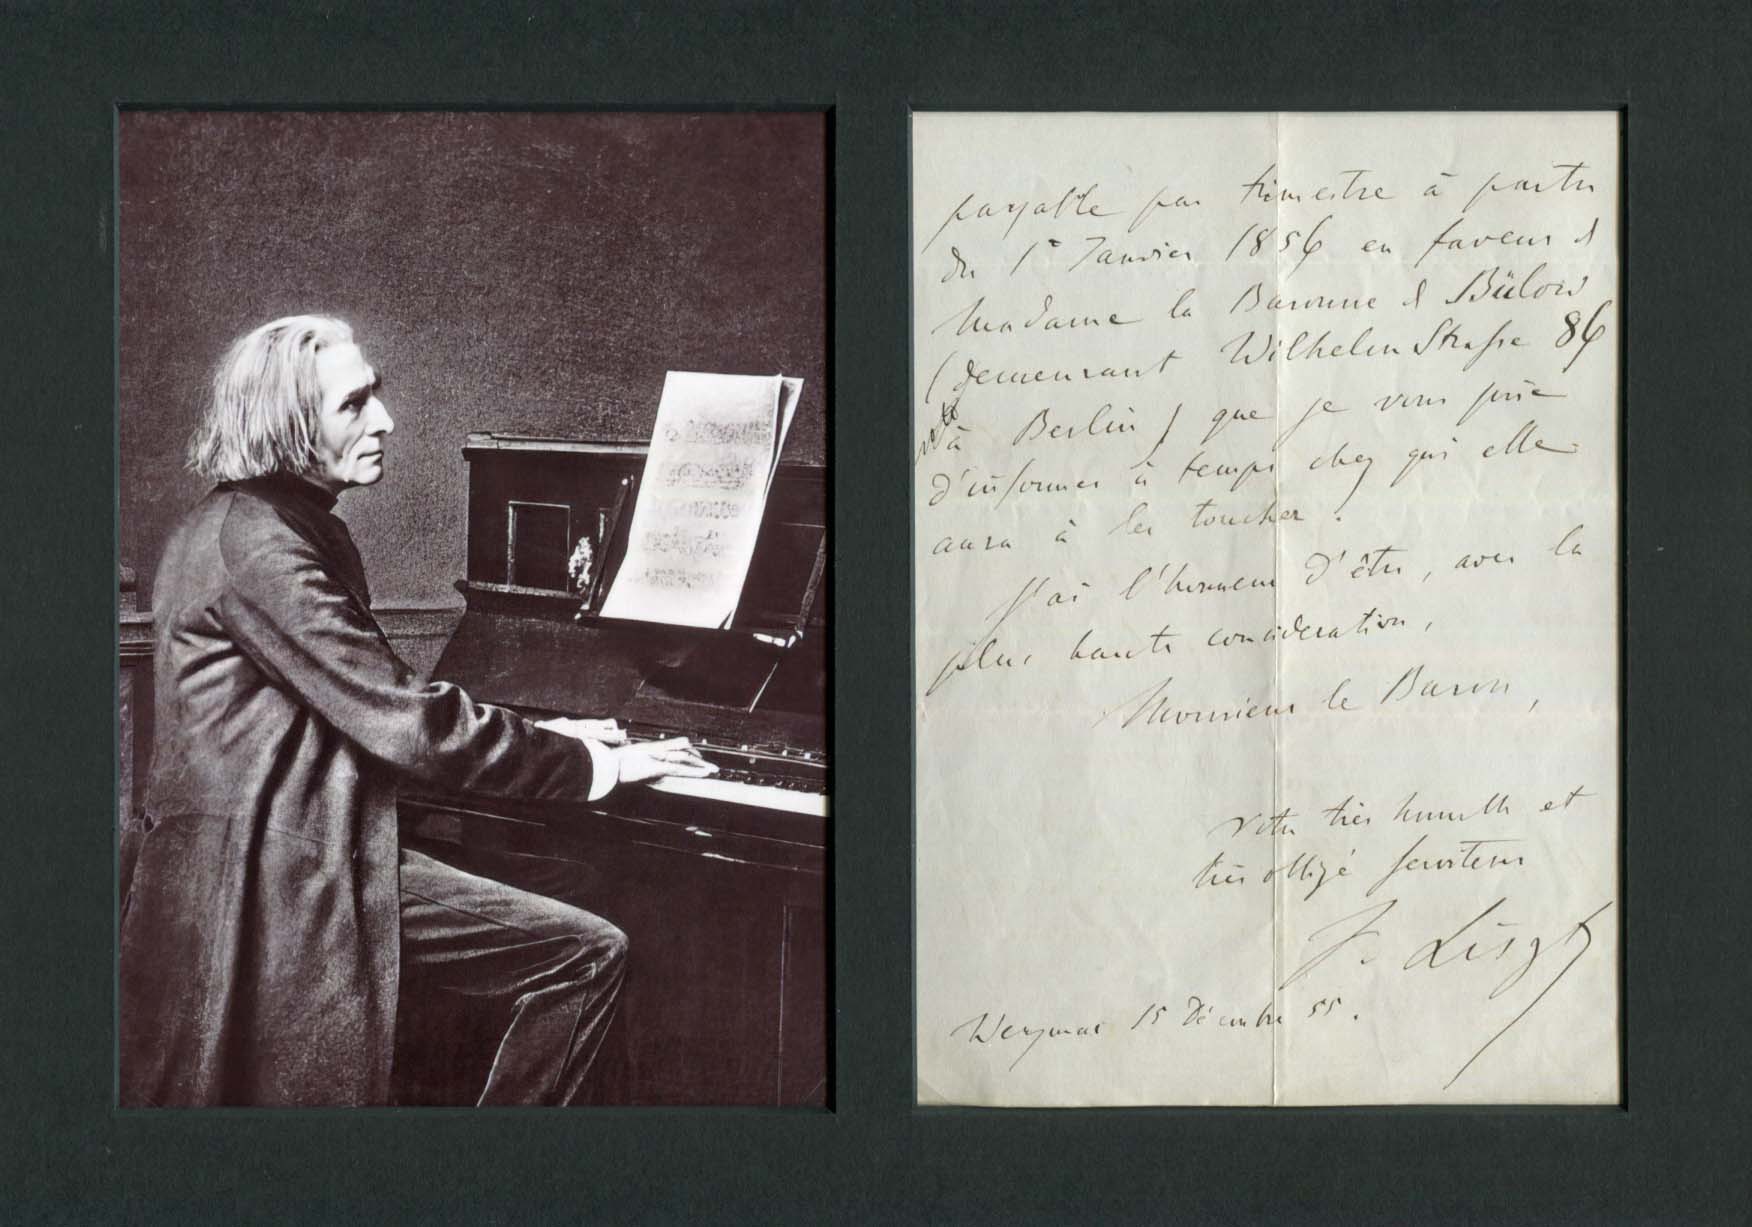 payable par trimestre à partir
du 1er Janvier 1856 en faveur de
Madame la Baronne de Bülow
(demeurant Wilhelm Straße 86
à Berlin) que je vous prie
d'informer à temps chez qui elle
aura à les toucher.
J'ai l'honneur d'être, avec la
plus haute considération,
Monsieur le Baron,
Votre très humble et
très obligé serviteur
F. Liszt
Weymar 15 Décembre 55.